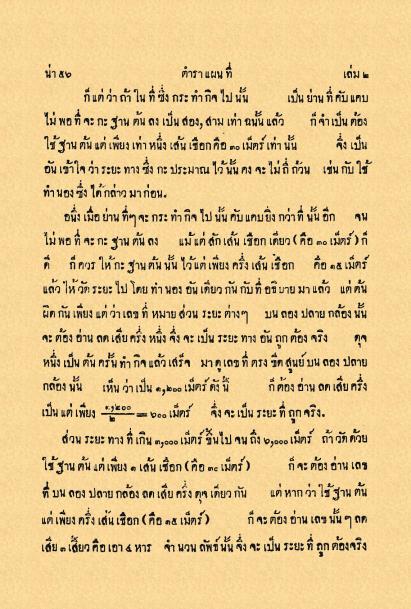 น่า ๕๖ ตำรา แผน ที่ เล่ม ๒
ก็ แต่ ว่า ถ้า ใน ที่ ซึ่ง กระ ทำ กิจ ไป นั้น เป็น ย่าน ที่ คับ แคบ
ไม่ พอ ที่ จะ กะ ฐาน ตัน ลง เป็น สอง, สาม เท่า ฉนั้น แล้ว ก็ จำ เป็น ต้อง
ใช้ ฐาน ตัน แต่ เพียง เท่า หนึ่ง เส้น เชือก คือ ๓๐ เมิตร์ เท่า นั้น จึ่ง เป็น
อัน เข้า ใจ ว่า ระยะ ทาง ซึ่ง กะ ประมาณ ไว้ นั้น คง จะ ไม่ ถี่ ถ้วน เช่น กับ ใช้
ทำ นอง ซึ่ง ได้ กล่าว มา ก่อน.
อนึ่ง เมื่อ ย่าน ที่ๆ จะ กระ ทำ กิจ ไป นั้น คับ แคบ ยิ่ง กว่า ที่ นั้น อีก จน
ไม่ พอ ที่ จะ กะ ฐาน ตัน ลง แม้ แต่ สัก เส้น เชือก เดียว (คือ ๓๐ เมิตร์) ก็
ดี ก็ ควร ให้ กะ ฐาน ตัน นั้น ไว้ แต่ เพียง ครึ่ง เส้น เชือก คือ ๑๕ เมิตร์
แล้ว ให้ วัด ระยะ ไป โดย ทำ นอง อัน เดียว กัน กับ ที่ อธิบาย มา แล้ว แต่ ตัน
ผิด กัน เพียง แต่ ว่า เลข ที่ หมาย ส่วน ระยะ ต่างๆ บน ลอง ปลาย กล้อง นั้น
จะ ต้อง อ่าน ลด เสีย ครึ่ง หนึ่ง จึ่ง จะ เป็น ระยะ ทาง อัน ถูก ต้อง จริง ดุจ
หนึ่ง เป็น ตัน ครั้น ทำ กิจ แล้ว เสร็จ มา ดู เลข ที่ ตรง ขีด สูนย์ บน ลอง ปลาย
กล้อง นั้น เห็น ว่า เป็น ๑,๒๐๐ เมิตร์ ดัง นี้ ก็ ต้อง อ่าน ลด เสีย ครึ่ง
เป็น แต่ เพียง ๑,๒๐๐/๒ = ๖๐๐ เมิตร์ จึ่ง จะ เป็น ระยะ ที่ ถูก จริง.
ส่วน ระยะ ทาง ที่ เกิน ๓,๐๐๐ เมิตร์ ขึ้น ไป จน ถึง ๖,๐๐๐ เมิตร์ ถ้า วัด ด้วย
ใช้ ฐาน ตัน แต่ เพียง ๑ เส้น เชือก (คือ ๓๐ เมิตร์) ก็ จะ ต้อง อ่าน เลข
ที่ บน ลอง ปลาย กล้อง ลด เสีย ครึ่ง ดุจ เดียว กัน แต่ หาก ว่า ใช้ ฐาน ตัน
แต่ เพียง ครึ่ง เส้น เชือก (คือ ๑๕ เมิตร์) ก็ จะ ต้อง อ่าน เลข นั้นๆ ลด
เสีย ๓ เสี้ยว คือ เอา ๔ หาร จำ นวน ลัพธ์ นั้น จึ่ง จะ เป็น ระยะ ที่ ถูก ต้อง จริง